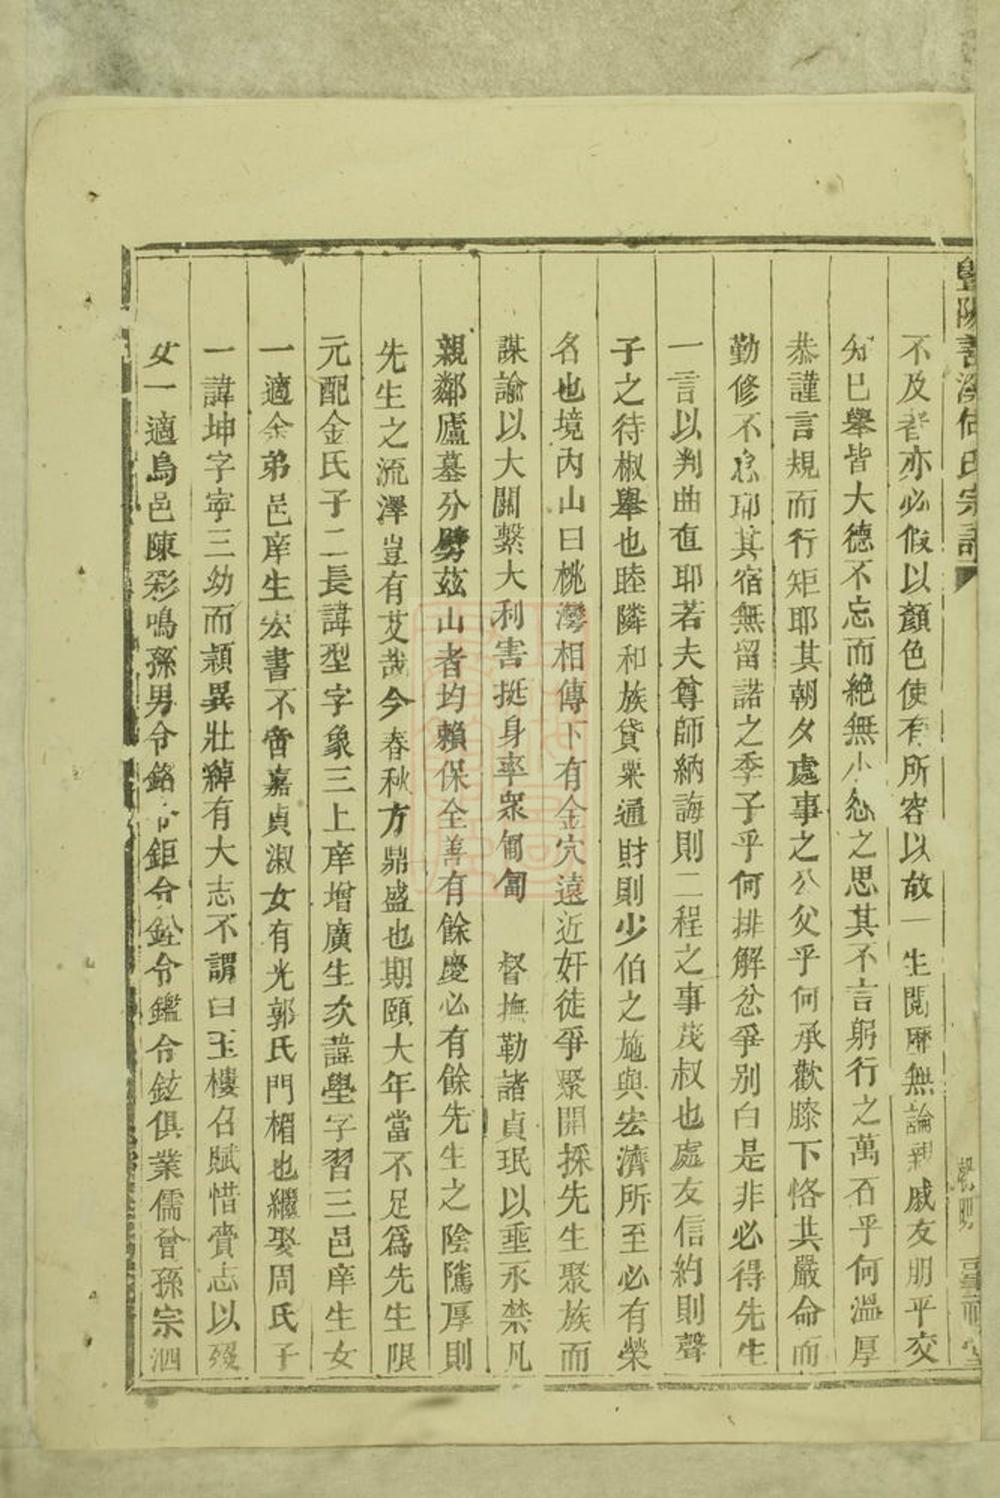 暨陽善溪何氏宗譜
不及者亦必假以顏色使有所容以故一生閱歷無論親戚友朋平交
知已舉皆大德不忘而絶無小忿之思其不言躬行之萬石乎何溫厚
恭謹言規而行矩耶其朝夕處事之公父乎何承歡膝下恪共嚴命而
勤修不怠耶其宿無留諾之季子乎何排解忿爭别白是非必得先生
一言以判曲直耶若夫尊師納誨則二程之事茂叔也處友信約則聲
子之待椒舉也睦隣和族貸粟通財則少伯之施與宏濟所至必有榮
名也境内山曰桃灣相傳下有金穴遠近奸徒爭聚開採先生聚族而
謀諭以大關繫大利害挺身率衆匍匐 督撫勒諸貞珉以垂永禁凡
親鄰廬墓分劈兹山者均賴保全善有餘慶必有餘先生之陰騭厚則
先生之流澤豈有艾哉今春秋方鼎盛也期頤大年當不足爲先生限
元配金氏子二長諱型字象三上庠增廣生次諱學字習三邑庠生女
一適余弟邑庠生宏書不啻嘉貞淑女有光郭氏門楣也繼娶周氏子
一諱坤字寜三幼而穎異壯綽有大志不謂曰玉樓召賦惜賫志以殁
女一適烏邑陳彩鳴孫男令銘令鉅令銓令鑑令鉉俱業儒曾孫宗泗